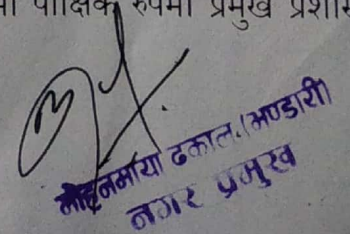 पाक्षिक रुपमा प्रमुख
मोहनमाया ढकाल (भण्डारी)
नगर प्रमुख